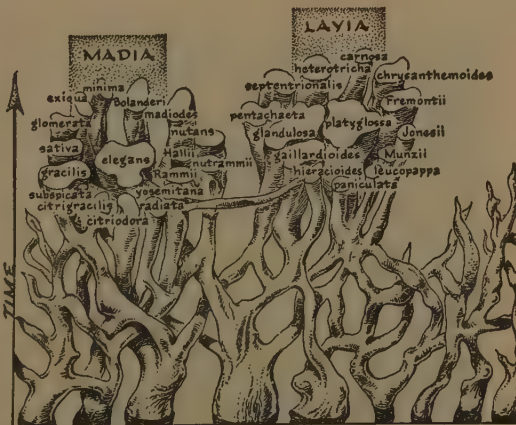 MADIA
minima
exiqua
Bolanderi
glomerata
madiodes
nutans
sativa
elegans
Hallii
nutrammii
gracilis
Rammii
subspicata
yosemitana
citrigracilis
radiata
citriodora
LAYIA
carnosa
heterotricha
chrysanthemoides
septentrionalis
Fremontii
pentachaeta
platyglossa
glandulosa
Jonesii
gaillardioides
Munzii
hieracioides
leucopappa
paniculata
TIME